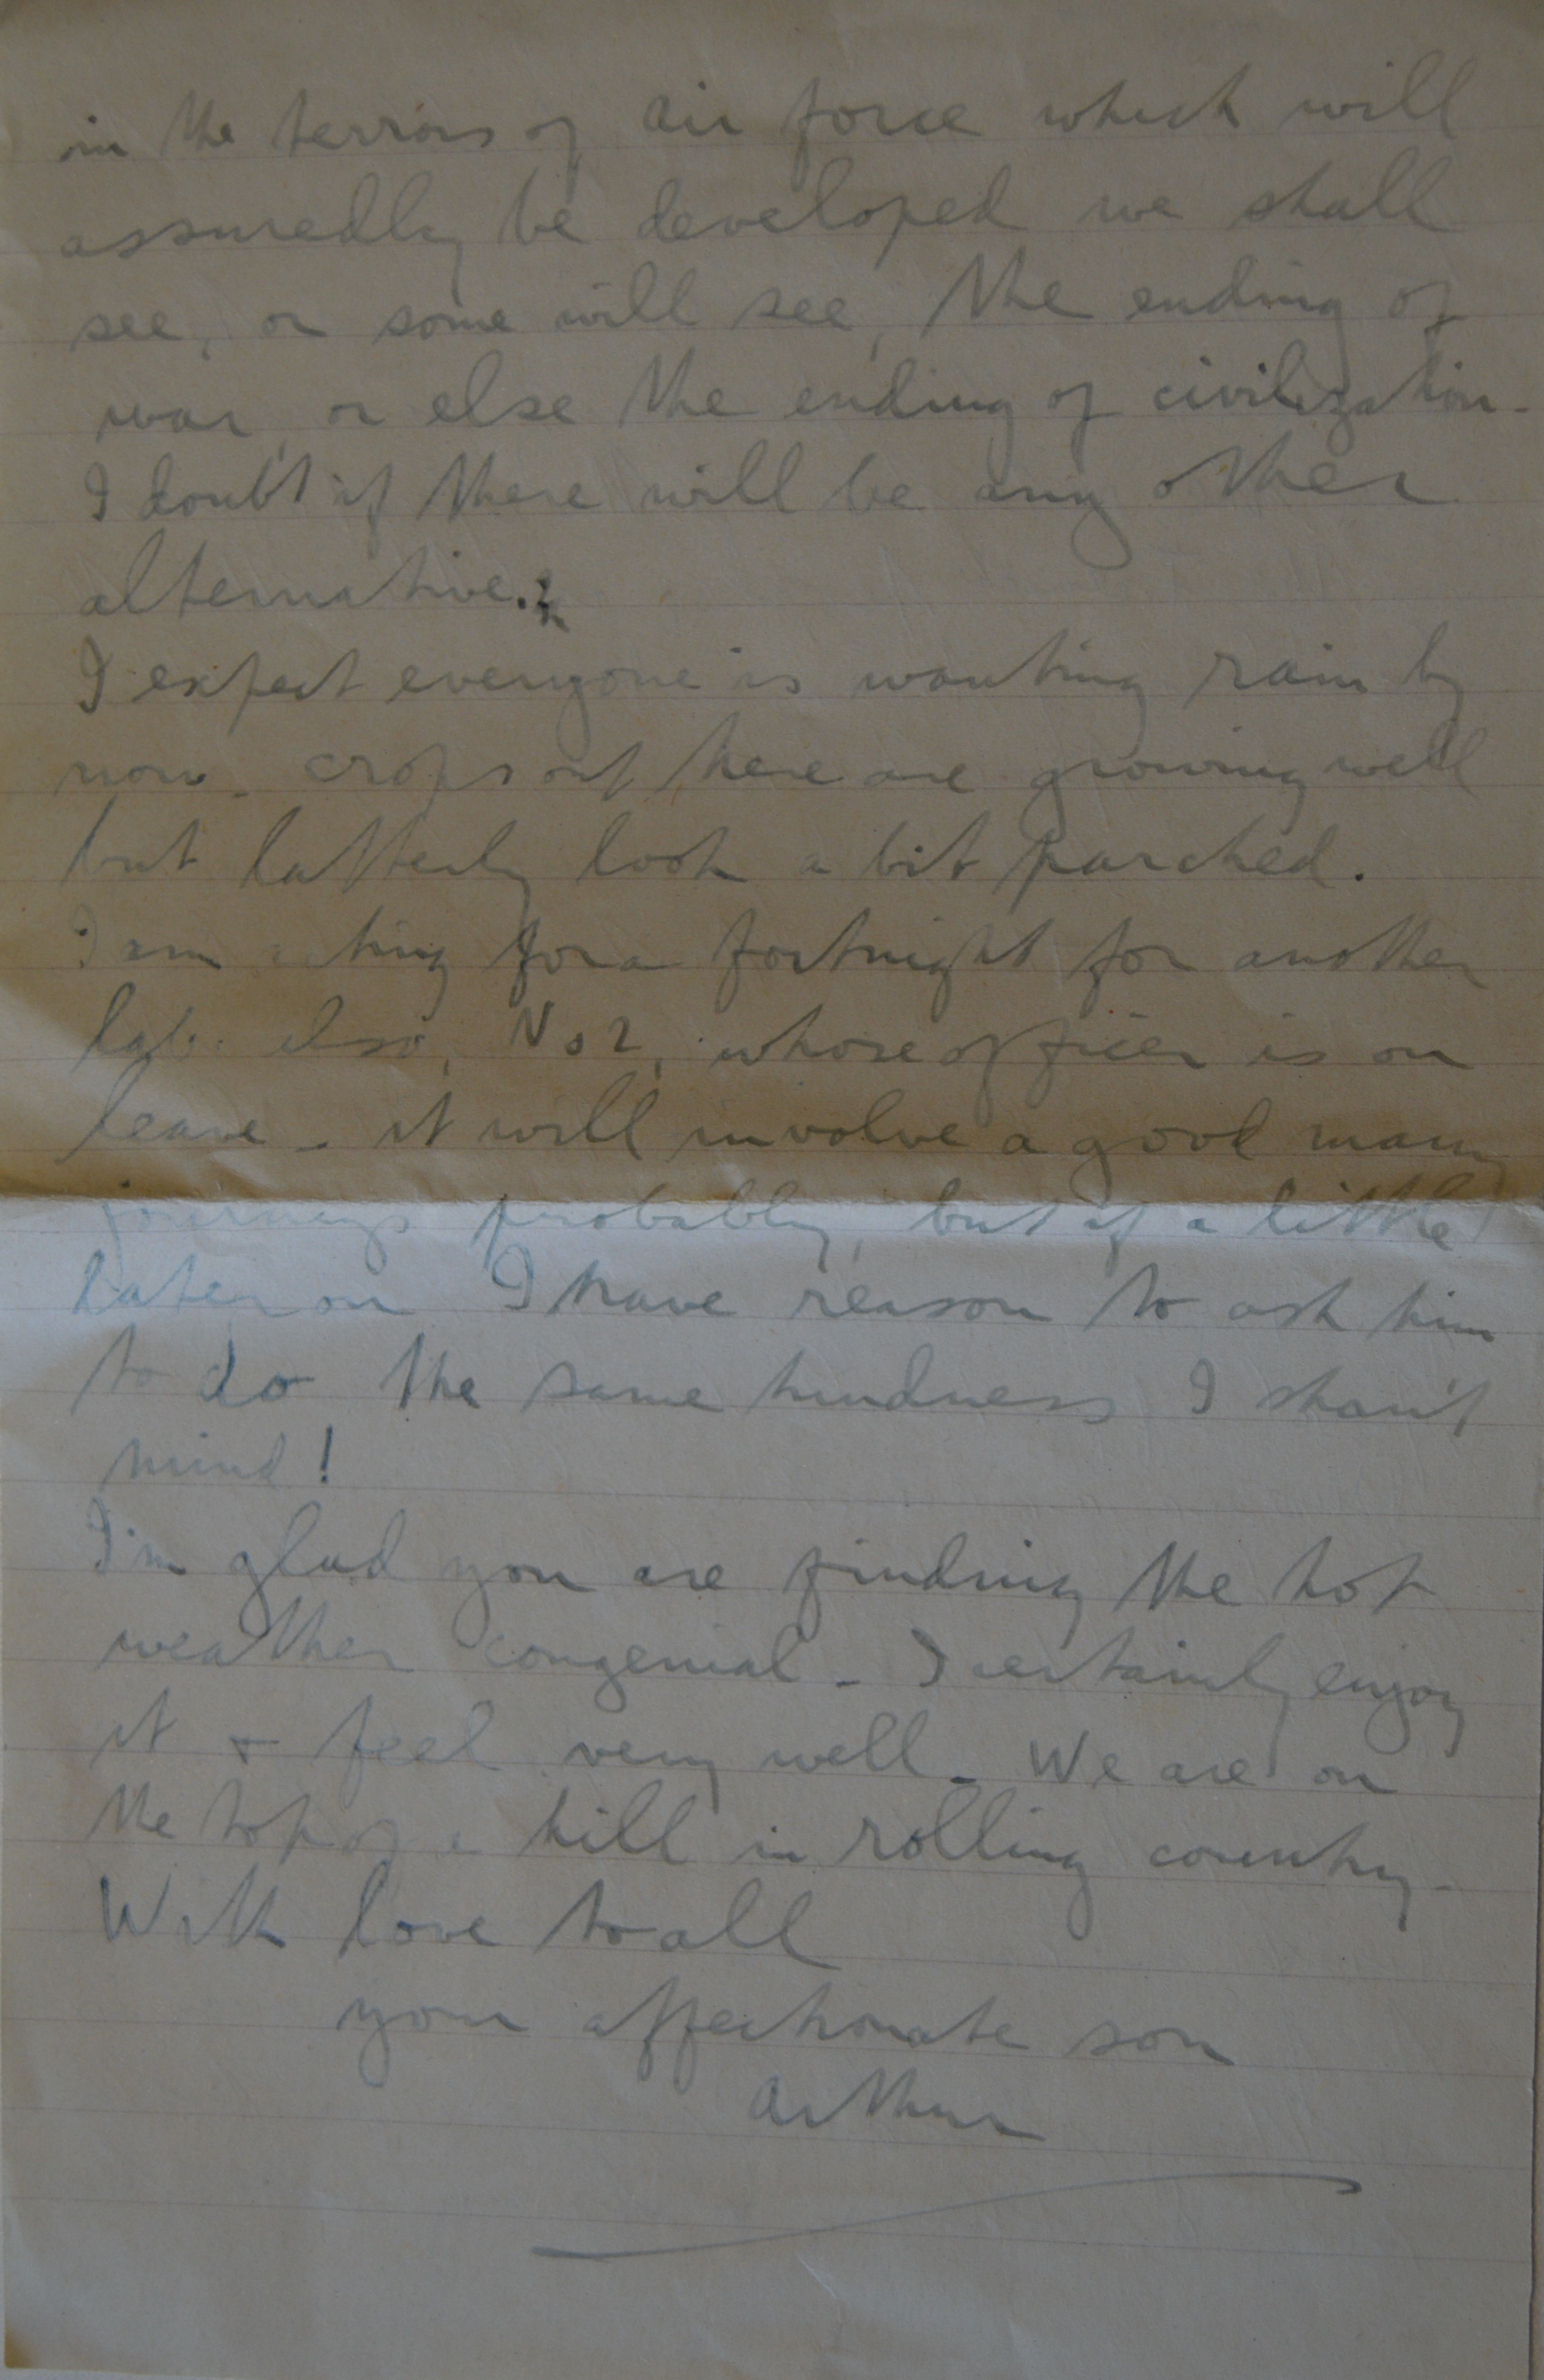 in the terrors of air force which will
assuredly be developed we shall
see, or some will see, the ending of
war, or else the ending of civilization -
I doubt if there will be any other
alternative.
I expect everyone is wanting rain by
now - crops out here are growing well
but latterly look a bit parched.
I am acting for a fortnight for another
lab. also, No 2, whose officer is on
leave - it will involve a good many
journeys probably, but if a little
later on I have reason to ask him
to do the same kindness I shan't
mind!
I'm glad you are finding the hot
weather congenial - I certainly enjoy
it + feel very well - We are on
the top of a hill in rolling country -
With love to all
your affectionate son
Arthur